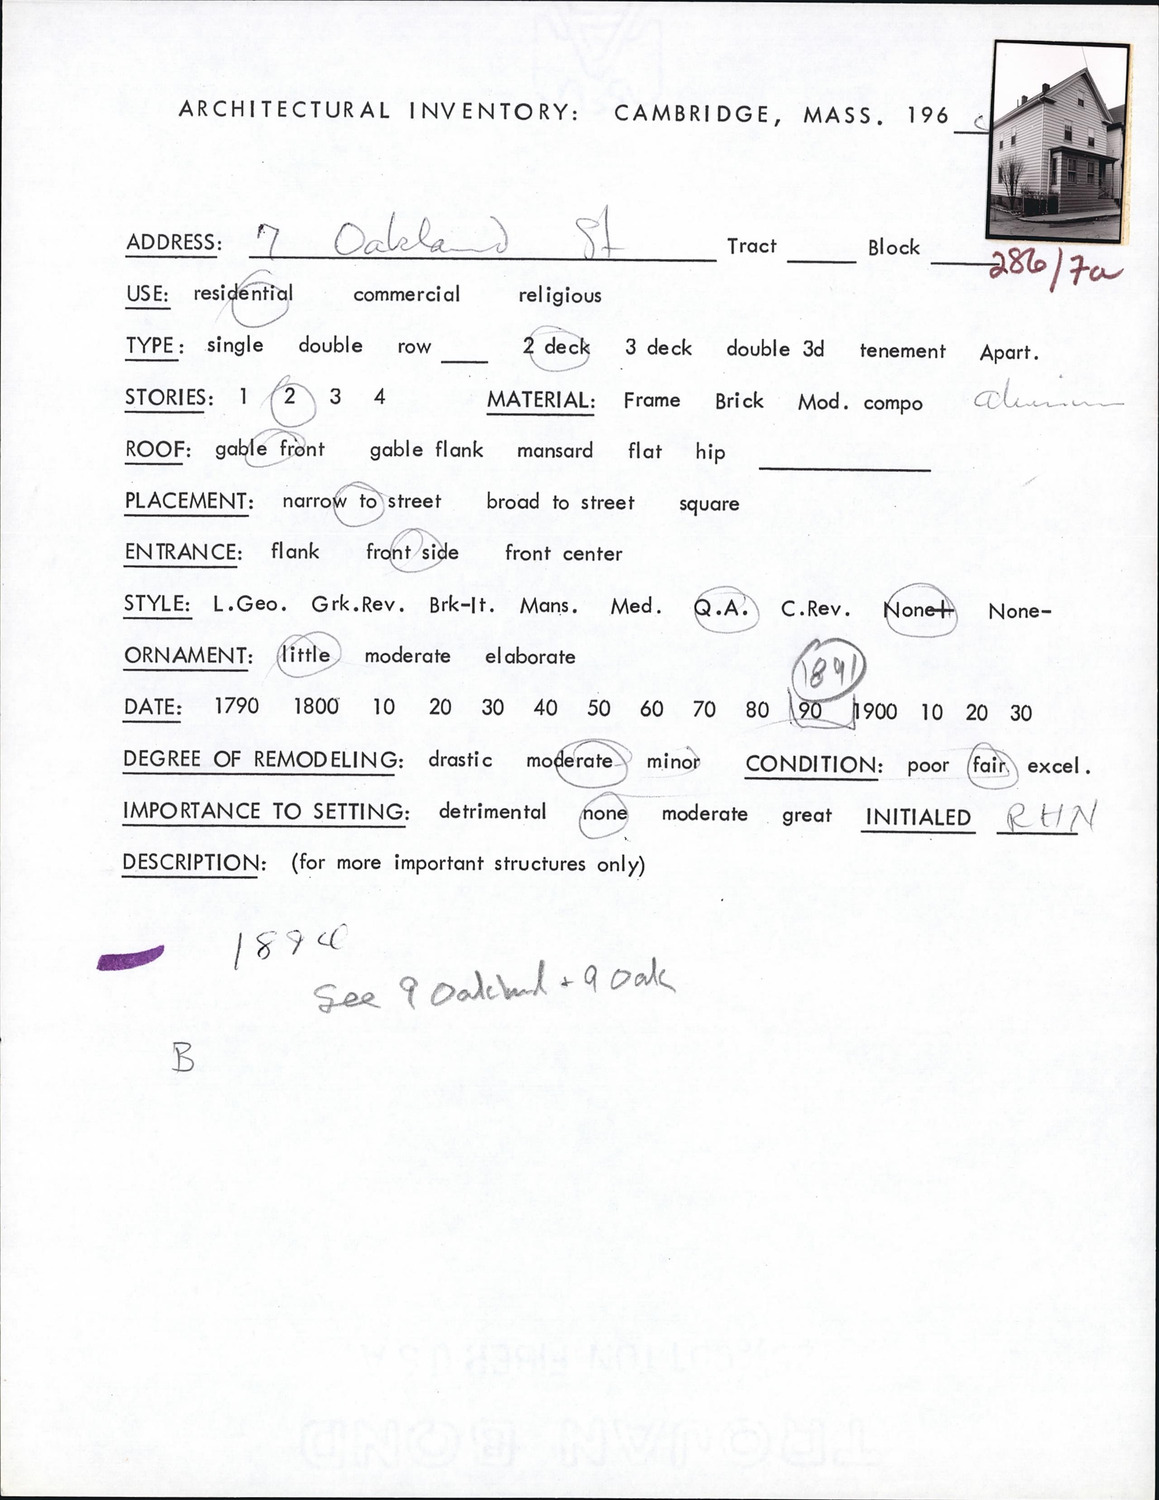 ARCHITECTURAL INVENTORY: CAMBRIDGE, MASS. 196
ADDRESS: 7 Oakland St Tract ____ Block ____
286/7a
USE: residential commercial religious
TYPE: single double row ____ 2 deck 3 deck double 3d tenement Apart.
STORIES: 1 2 3 4 MATERIAL: Frame Brick Mod. compo aluminum
ROOF: gable front gable flank mansard flat hip ____
PLACEMENT: narrow to street broad to street square
ENTRANCE: flank front side front center
STYLE: L.Geo. Grk.Rev. Brk-It. Mans. Med. Q.A. C.Rev. None+ None-
ORNAMENT: little moderate elaborate
1891
DATE: 1790 1800 10 20 30 40 50 60 70 80 90 1900 10 20 30
DEGREE OF REMODELING: drastic moderate minor CONDITION: poor fair excel.
IMPORTANCE TO SETTING: detrimental none moderate great INITIALED RHN
DESCRIPTION: (for more important structures only)
See 9 Oakland + 9 Oak
B